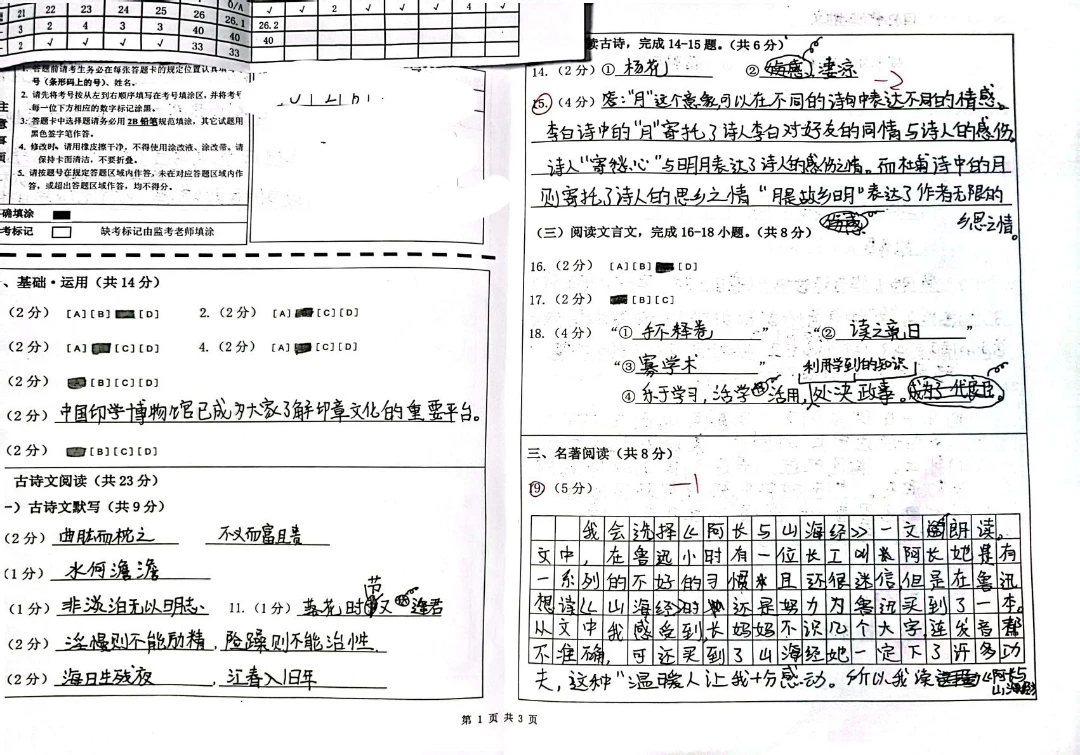 21 22 23 24 25 26 0/A
3 2 4 3 3 40 26.1 26.2
√ √ √ √ 33 40 40
33
√ √ 2 √ √ √ 4 √
号（条形码上的号）、姓名。
2. 请先将考号按从左到右顺序填写在考号填涂区，并将考号
每一位下方相应的数字标记涂黑。
3. 答题卡中选择题请务必用 2B 铅笔规范填涂，其它试题用
黑色签字笔作答。
4. 修改时，请用橡皮擦干净，不得使用涂改液、涂改带。请
保持卡面清洁，不要折叠。
5. 请按题号在规定答题区域内作答，未在对应答题区域内作
答，或超出答题区域作答，均不得分。
确填涂
考标记 缺考标记由监考老师填涂
、基础·运用（共 14 分）
（2 分） [A] [B] [D] 2.（2 分） [A] [C] [D]
（2 分） [A] [C] [D] 4.（2 分） [A] [C] [D]
（2 分） [B] [C] [D]
（2 分）中国印学博物馆已成为大家了解印章文化的重要平台。
（2 分） [B] [C] [D]
古诗文阅读（共 23 分）
一）古诗文默写（共 9 分）
（2 分）曲肱而枕之 不义而富且贵
（1 分）水何澹澹
（1 分）非淡泊无以明志 11.（1 分）落花时节又逢君
（2 分）淫慢则不能励精，险躁则不能治性
（2 分）海日生残夜，江春入旧年
读古诗，完成 14-15 题。（共 6 分）
14.（2 分）① 杨花 ② 凄凉
-2
15.（4 分）答："月"这个意象可以在不同的诗句中表达不同的情感。
李白诗中的"月"寄托了诗人李白对好友的同情与诗人的感伤
诗人"寄愁心"与明月表达了诗人的感伤之情。而杜甫诗中的月
则寄托了诗人的思乡之情"月是故乡明"表达了作者无限的
思乡之情。
（三）阅读文言文，完成 16-18 小题。（共 8 分）
16.（2 分） [A] [B] [D]
17.（2 分） [B] [C]
18.（4 分）"① 手不释卷" "② 读之竟日"
"③ 寡学术" 利用学到的知识
④ 乐于学习，活学活用，处决政事。成为了一代良臣
三、名著阅读（共 8 分）
19.（5 分） -1
我会选择《阿长与山海经》一文朗读。
文中，在鲁迅小时有一位长工叫阿长她是有
一系列的不好的习惯且还很迷信，但是在鲁迅
想读《山海经》时还是努力为鲁迅买到了一本。
从文中我感受到，长妈妈不识几个大字，连发音都
不准确，可还买到了山海经她一定下了许多功
夫，这种"温暖人让我十分感动。所以我读《阿长与
山海经》
第 1 页 共 3 页